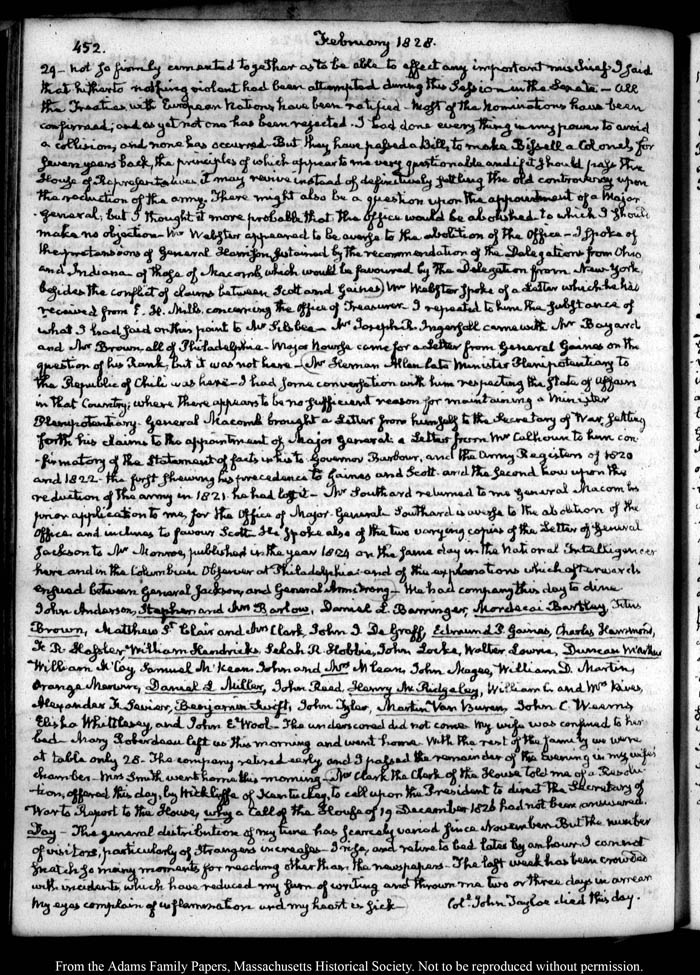 452.
February 1828.
29 – not so firmly cemented together as to be able to effect any important mischief. I said
that hitherto nothing violent had been attempted during this Session in the Senate – All
the Treaties with European Nations have been ratified – Most of the Nominations have been
confirmed; and as yet not one has been rejected – I had done every thing in my power to avoid
a collision, and none has occurred – But they have passed a Bill, to make Bissell a Colonel, for
seven years back, the principles of which appear to me very questionable and if it should pass the
House of Representatives it may revive instead of definitively settling the old controversy upon
the reduction of the army. There might also be a question upon the appointment of a Major
General; but I thought it more probable that the Office would be abolished – to which I should
make no objection – Mr Webster appeared to be averse to the abolition of the Office – I spoke of
the pretensions of General Harrison, sustained by the recommendation of the Delegations from Ohio
and Indiana – of those of Macomb, which would be favoured by the Delegation from New-York,
besides the conflict of claims between Scott and Gaines) Mr Webster spoke of a Letter which he has
received from E. H. Mills, concerning the office of Treasurer. I repeated to him the substance of
what I had said on this point to Mr Silsbee – Mr Joseph R. Ingersoll came with Mr Bayard
and Mr Brown, all of Philadelphia – Major Nourse came for a Letter from General Gaines on the
question of his Rank; but it was not here – (Mr Heman Allen late Minister Plenipotentiary to
the Republic of Chili was here – I had some conversation with him respecting the State of affairs
in that Country; where there appears to be no sufficient reason for maintaining a Minister
Plenipotentiary. General Macomb brought a Letter from himself to the Secretary of War, setting
forth his claims to the appointment of Major General: a Letter from Mr Calhoun to him con-
-firmatory of the Statement of facts in his to Governor Barbour, and the Army Registers of 1820
and 1822 – the first shewing his precedence to Gaines and Scott and the second how upon the
reduction of the army in 1821. he had lost it – Mr Southard returned to me General Macomb's
prior application to me, for the Office of Major General – Southard is averse to the abolition of the
Office and inclines to favour Scott – He spoke also of the two varying copies of the Letter of General
Jackson to Mr Monroe, published in the year 1824 on the same day in the National Intelligencer
here and in the Columbian Observer at Philadelphia: and of the explanations which afterwards
ensued between General Jackson, and General Armstrong – We had company this day to dine
John Anderson, Stephen and Mrs Barlow, Daniel L. Barringer, Mordecai Bartley, Titus
Brown, Matthew St Clair and Mrs Clark, John I. De Graff, Edmund P. Gaines, Charles Hammond,
F. R. Hassler William Hendricks, Selah R. Hobbie, John Locke, Walter Lowrie, Duncan McArthur
William McCoy, Samuel McKean, John and Mrs McLean, John Magee, William D. Martin,
Orange Merwin, Daniel H. Miller, John Reed, Henry M. Ridgeley, William C. and Mrs Rives,
Alexander Smyth, Benjamin Swift, John Tyler, Martin Van Buren, John C. Weems
Elisha Whittlesey, and John E. Wool – The underscored did not come. My wife was confined to her
bed – Mary Roberdeau left us this morning and went home. With the rest of the family we were
at table only 28. The company retired early and I passed the remainder of the Evening in my wife's
chamber – Mrs Smith went home this morning – Mr Clark the Clerk of the House told me of a Resolu-
-tion, offered this day, by Wickliffe of Kentucky, to call upon the President to direct the Secretary of
War to Report to the House, why a Call of the House of 19 December 1826 had not been answered.
Day – The general distribution of my time has scarcely varied since November. But the number
of visitors, particularly of Strangers increases – I rise, and retire to bed later by an hour. I cannot
snatch so many moments for reading other than the newspapers – The last week has been crowded
with incidents, which have reduced my hours of writing and thrown me two or three days in arrear
My eyes complain of inflammation and my heart is sick – Col. John Tayloe died this day.
From the Adams Family Papers, Massachusetts Historical Society. Not to be reproduced without permission.